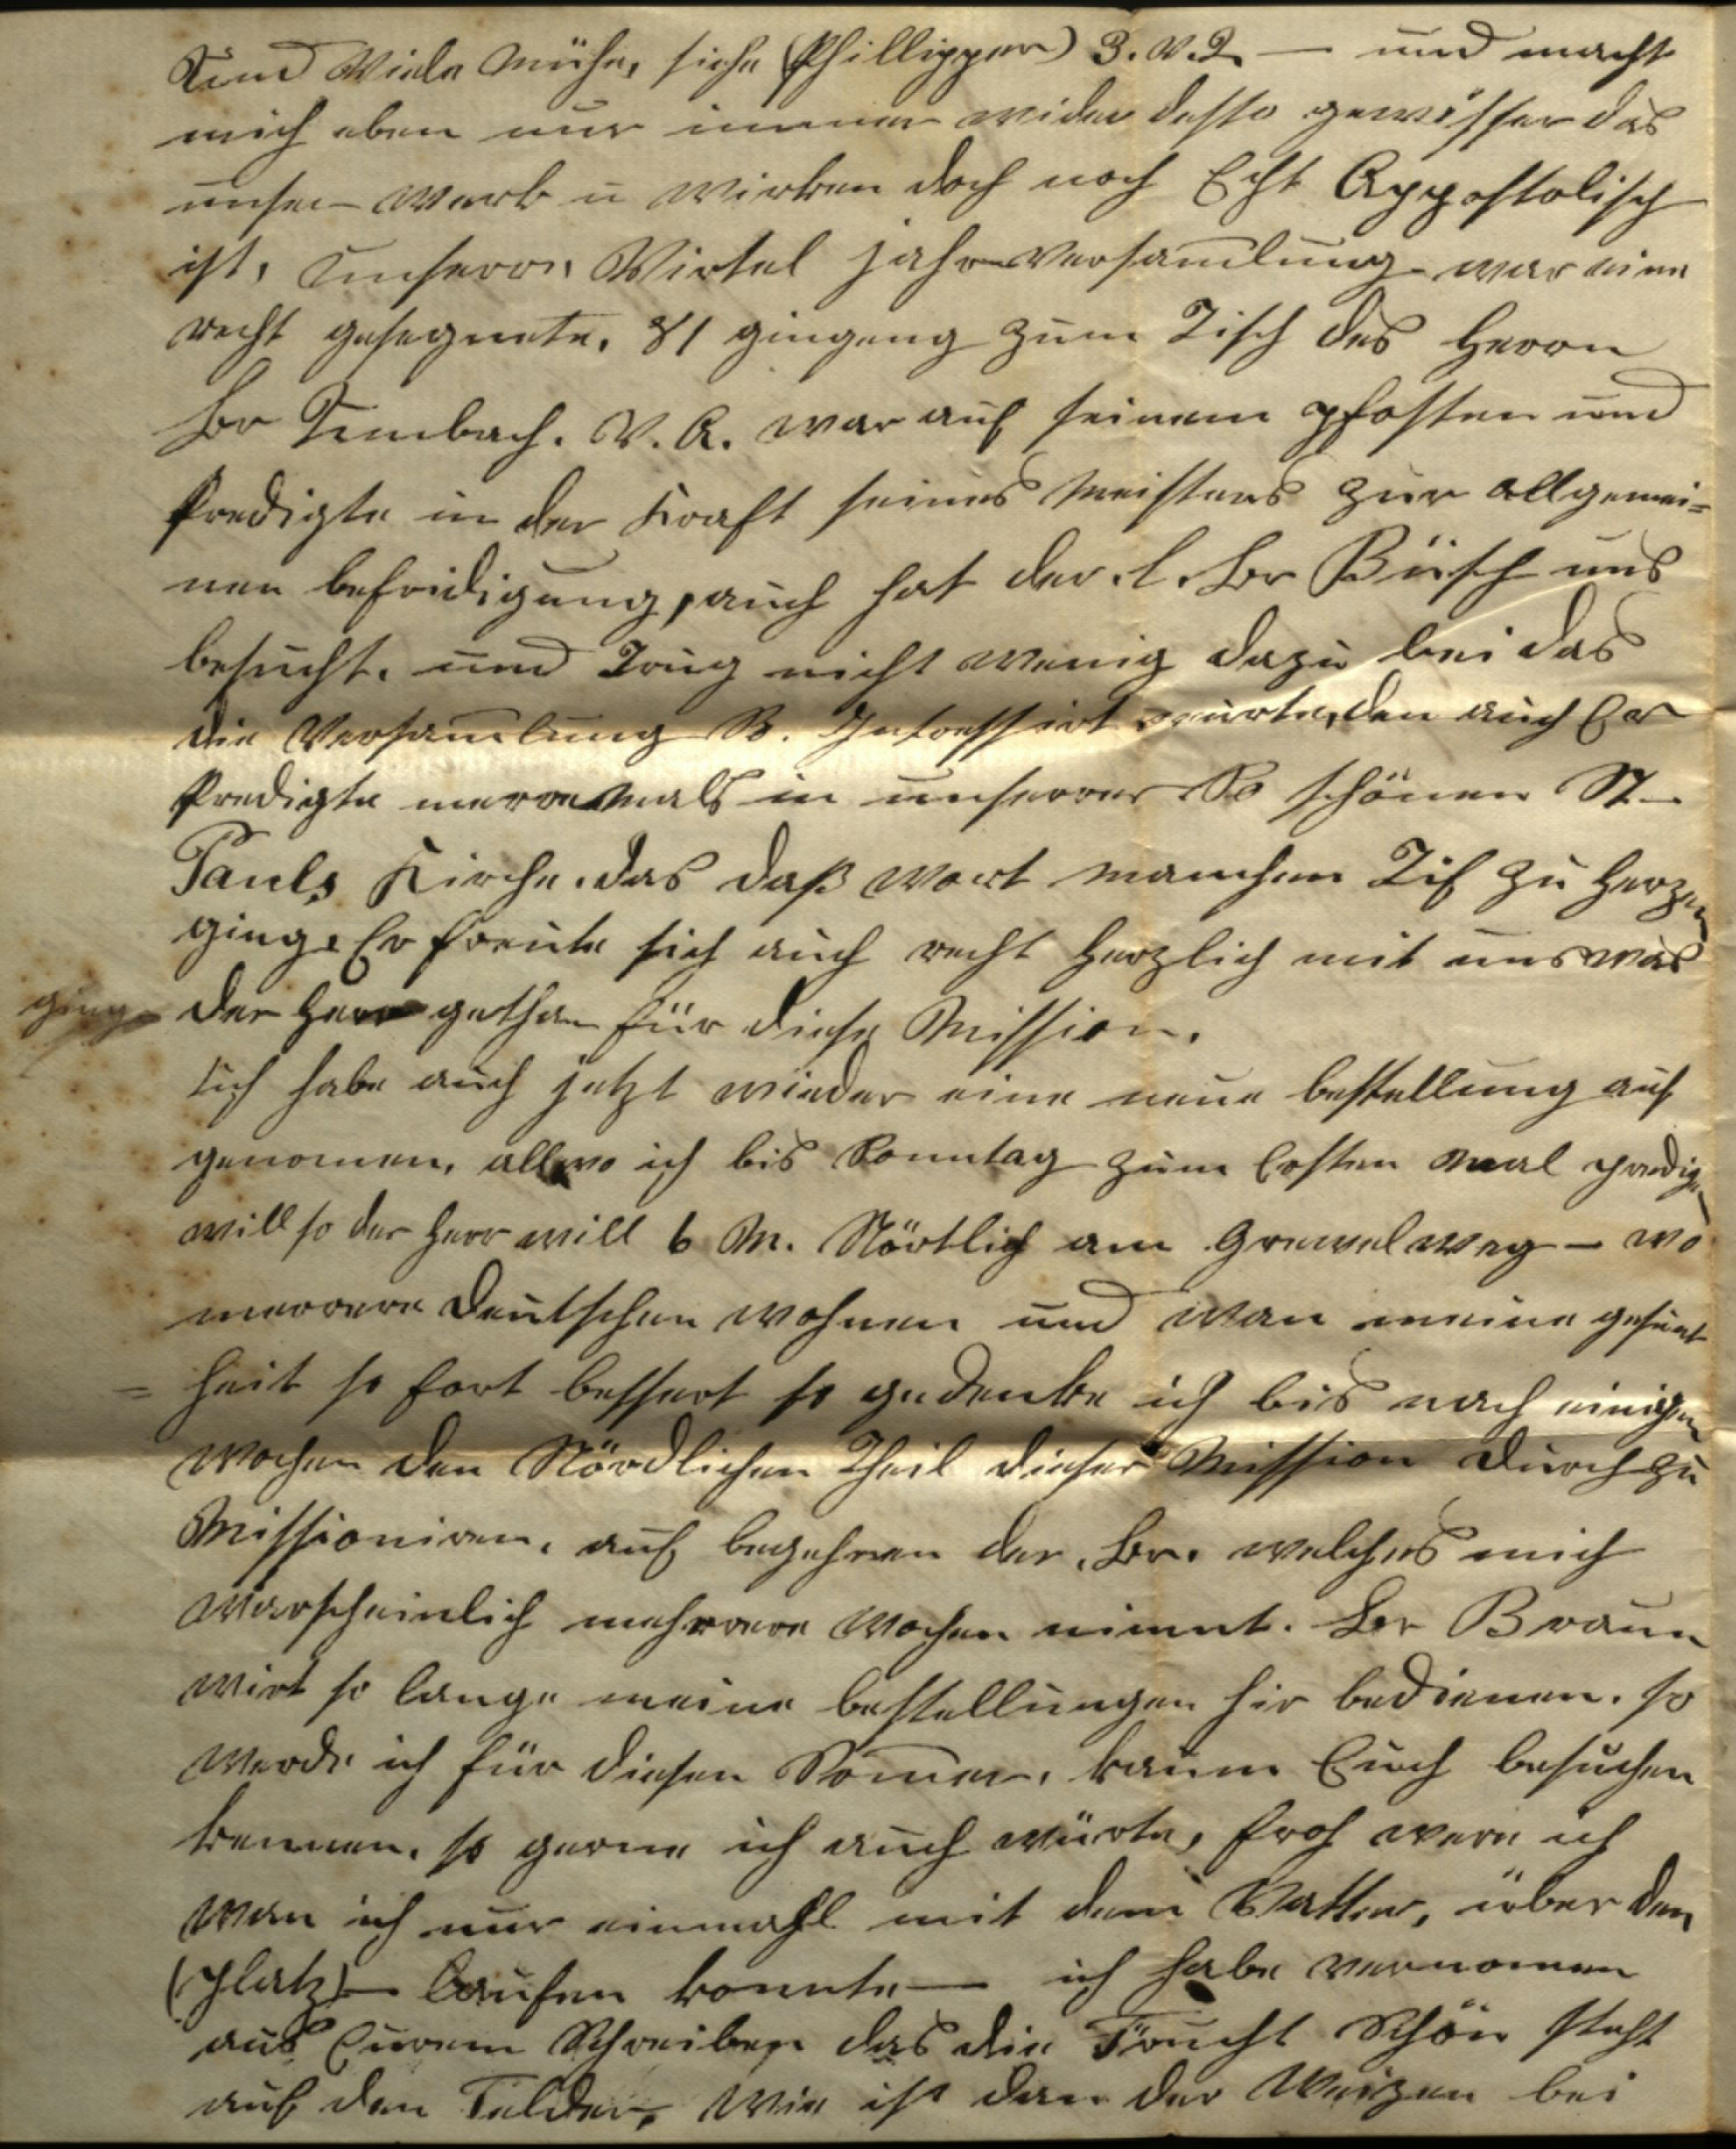 und Viele Mühe, siehe (Phillipper) 3. V. 2. — und macht
mich eben nur immer wider desto gewisser das
unser werk u wirken doch noch Echt Appostolisch
ist, unserre Virtel jahr versamlung war eine
recht gesegnete, 81 gingeng zum Tisch des Herrn
Br V. A. war auf seinem pfosten und
Predigte in der Kraft seines Meisters zur allgemei=
nen befridigung, auch hat der l. Br Büsch uns
besucht, und Trug nicht wenig dazu bei das
die Versamlung S. Intressirt wurte, den auch Er
Predigte merremals in unserrer So schönen St
Pauls Kirche. das daß wort manchen Tif zu Herzen
ging. Er freute sich auch recht Herzlich mit uns was
der Herr gethan für diese Mission.
Ich habe auch jetzt wieder eine neue bestellung auf
genomen, allwo ich bis Sonntag zum Ersten mal predigen
will so der Herr will 6 M. Nörtlich am Grewelweg — wo
merrere Deutschen wohnen und wan meine gesunt
= heit so fort bessert so gedenke ich bis nach einigen
wochen den Nördlichen Theil dieser Mission durch zu
Missioniren, auf begehren der Br. welches mich
warscheinlich mehrrere wochen nimmt. Br Braun
wirt so lange meine bestellungen hir bedienen. so
werde ich für diesen Somer, kaum Euch besuchen
kennen, so gerne ich auch würte, froh were ich
wan ich nur einmahl mit dem Vatter, über den
(Platz) — laufen konnte — ich habe vernomen
aus Eurem Schreiben das die Frucht Schön steht
auf den Felder, Wie ist dan der Weizen bei